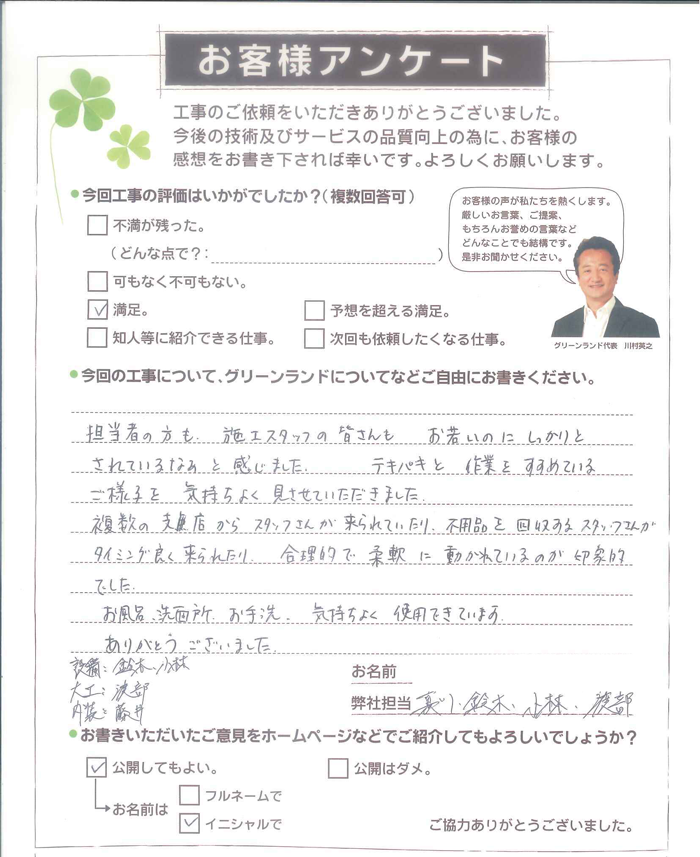 お客様アンケート
工事のご依頼をいただきありがとうございました。
今後の技術及びサービスの品質向上の為に、お客様の
感想をお書き下されば幸いです。よろしくお願いします。
今回工事の評価はいかがでしたか?(複数回答可)
不満が残った。
(どんな点で?: )
可もなく不可もない。
満足。
予想を超える満足。
知人等に紹介できる仕事。
次回も依頼したくなる仕事。
お客様の声が私たちを熱くします。
厳しいお言葉、ご提案、
もちろんお誉めの言葉など
どんなことでも結構です。
是非お聞かせください。
グリーンランド代表 川村英之
今回の工事について、グリーンランドについてなどご自由にお書きください。
担当者の方も、施工スタッフの皆さんも お若いのに しっかりと
されているなぁと感じました。 テキパキと 作業をすすめている
ご様子を 気持ちよく見させていただきました。
複数の支店から スタッフさんが来られていたり、不用品を回収するスタッフさんが
タイミング良く来られたり、合理的で柔軟に動かれているのが印象的
でした。
お風呂、洗面所、お手洗、気持ちよく使用できています。
ありがとうございました。
設備:鈴木・小林
大工:渡部
内装:藤井
お名前
弊社担当 鈴木・小林・渡部
お書きいただいたご意見をホームページなどでご紹介してもよろしいでしょうか?
公開してもよい。
公開はダメ。
お名前は
フルネームで
イニシャルで
ご協力ありがとうございました。